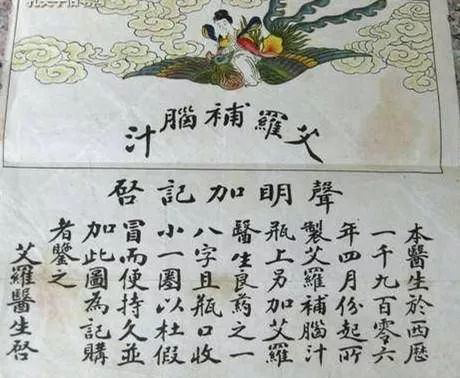 艾羅補腦汁
聲明加記啓
本醫生於西歷
一千九百零六
年四月份起所
製艾羅補腦汁
瓶上另加艾羅
醫生良藥之一
八字且瓶口收
小一圈以杜假
冒而便持久並
加此圖為記購
者鑒之
艾羅醫生啓